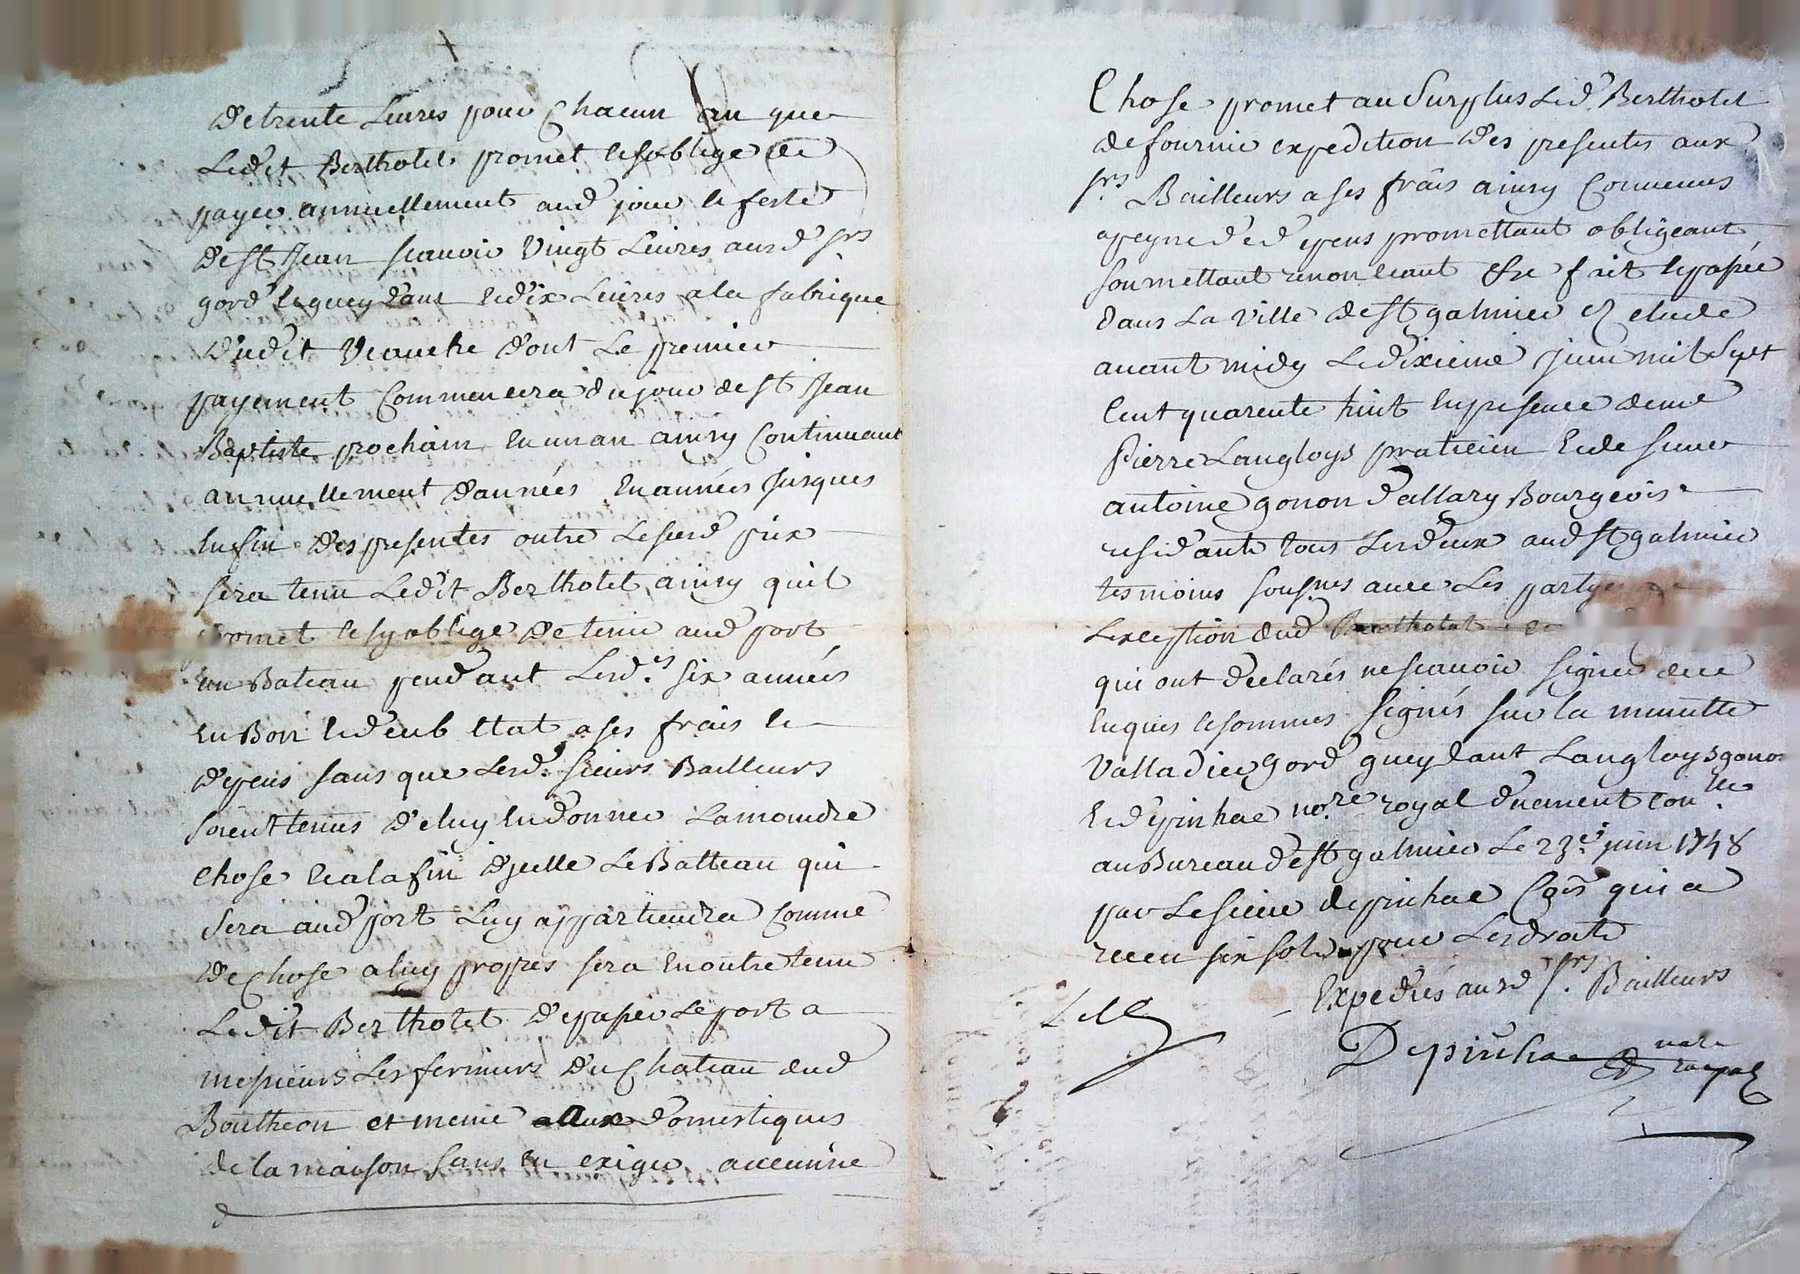 de trente Livres pour Chacun an que
Ledit Bertholet promet et soblige de
payer annuellement aud jour et feste
de st Jean scauoir Vingt Livres ausd srs
gord et gueydant et dix Livres a la fabrique
dudit Veauche dont Le premier
payement Commencera du jour de st Jean
Baptiste prochain en un an ainsy Continuant
annuellement d'années En années Jusques
En fin des presentes outre Le susd prix
sera tenu Ledit Bertholet ainsy quil
promet et sy oblige de tenir aud port
un Bateau pendant Lesd.s six années
En Bon et deub Etat a ses frais et
depens sans que Lesd. sieurs Bailleurs
soient tenus d'eluy En donner La moindre
Chose et a la fin dJcelle Le Batteau qui
sera aud port Luy appartiendra Comme
de Chose a luy propres sera En outre tenu
Ledit Bertholet de passer Le port a
messieurs Les fermiers du Chateau dud
Bouthéon et meme aux domestiques
de la maison sans En exiger aucunne
Chose promet au Surplus Led Bertholet
de fournir expedition des presentes aux
srs Bailleurs a ses frais ainsy Convenus
a peyne d ed depens promettant obligeant
soumettant renonceant &c fait et passé
dans La Ville de st galmier Etude
avant midy Le dixieme juin mil Sept
Cent quarente huit En presence de me
Pierre Langloys praticien et de sieur
antoine gonon d'allary Bourgeois
residants tous Les deux aud st galmier
tesmoins sousnes avec Les partyes
Lexception dud Bertholet
qui ont declarés ne scavoir signer de ce
Enquis et sommés signés sur la minutte
Valladier Gord gueydant Langloys gonon
et depinhac nore royal duement Conlle
au Bureau de st galmier Le 23e juin 1748
par Le sieur depinhac Cõis qui a
receu six sols pour Les droits
Expediés ausd srs. Bailleurs
Depinhac nore
royal